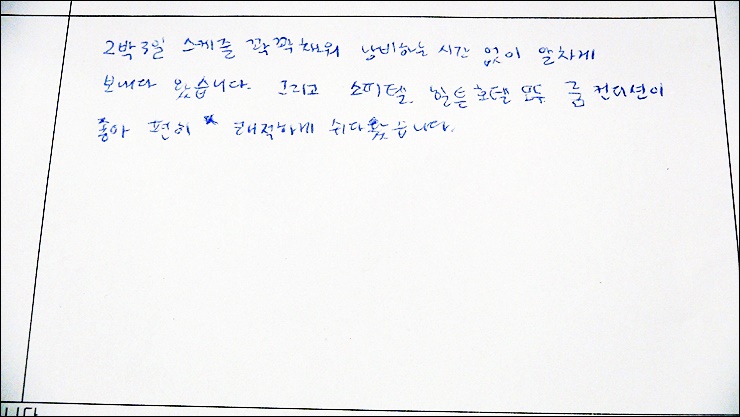 2박3일 스케줄 꽉꽉채워 낭비하는 시간 없이 알차게
보내다 왔습니다. 그리고 소피텔, 힐튼호텔 모두 룸컨디션이
좋아 편히 쾌적하게 쉬다왔습니다.
니다